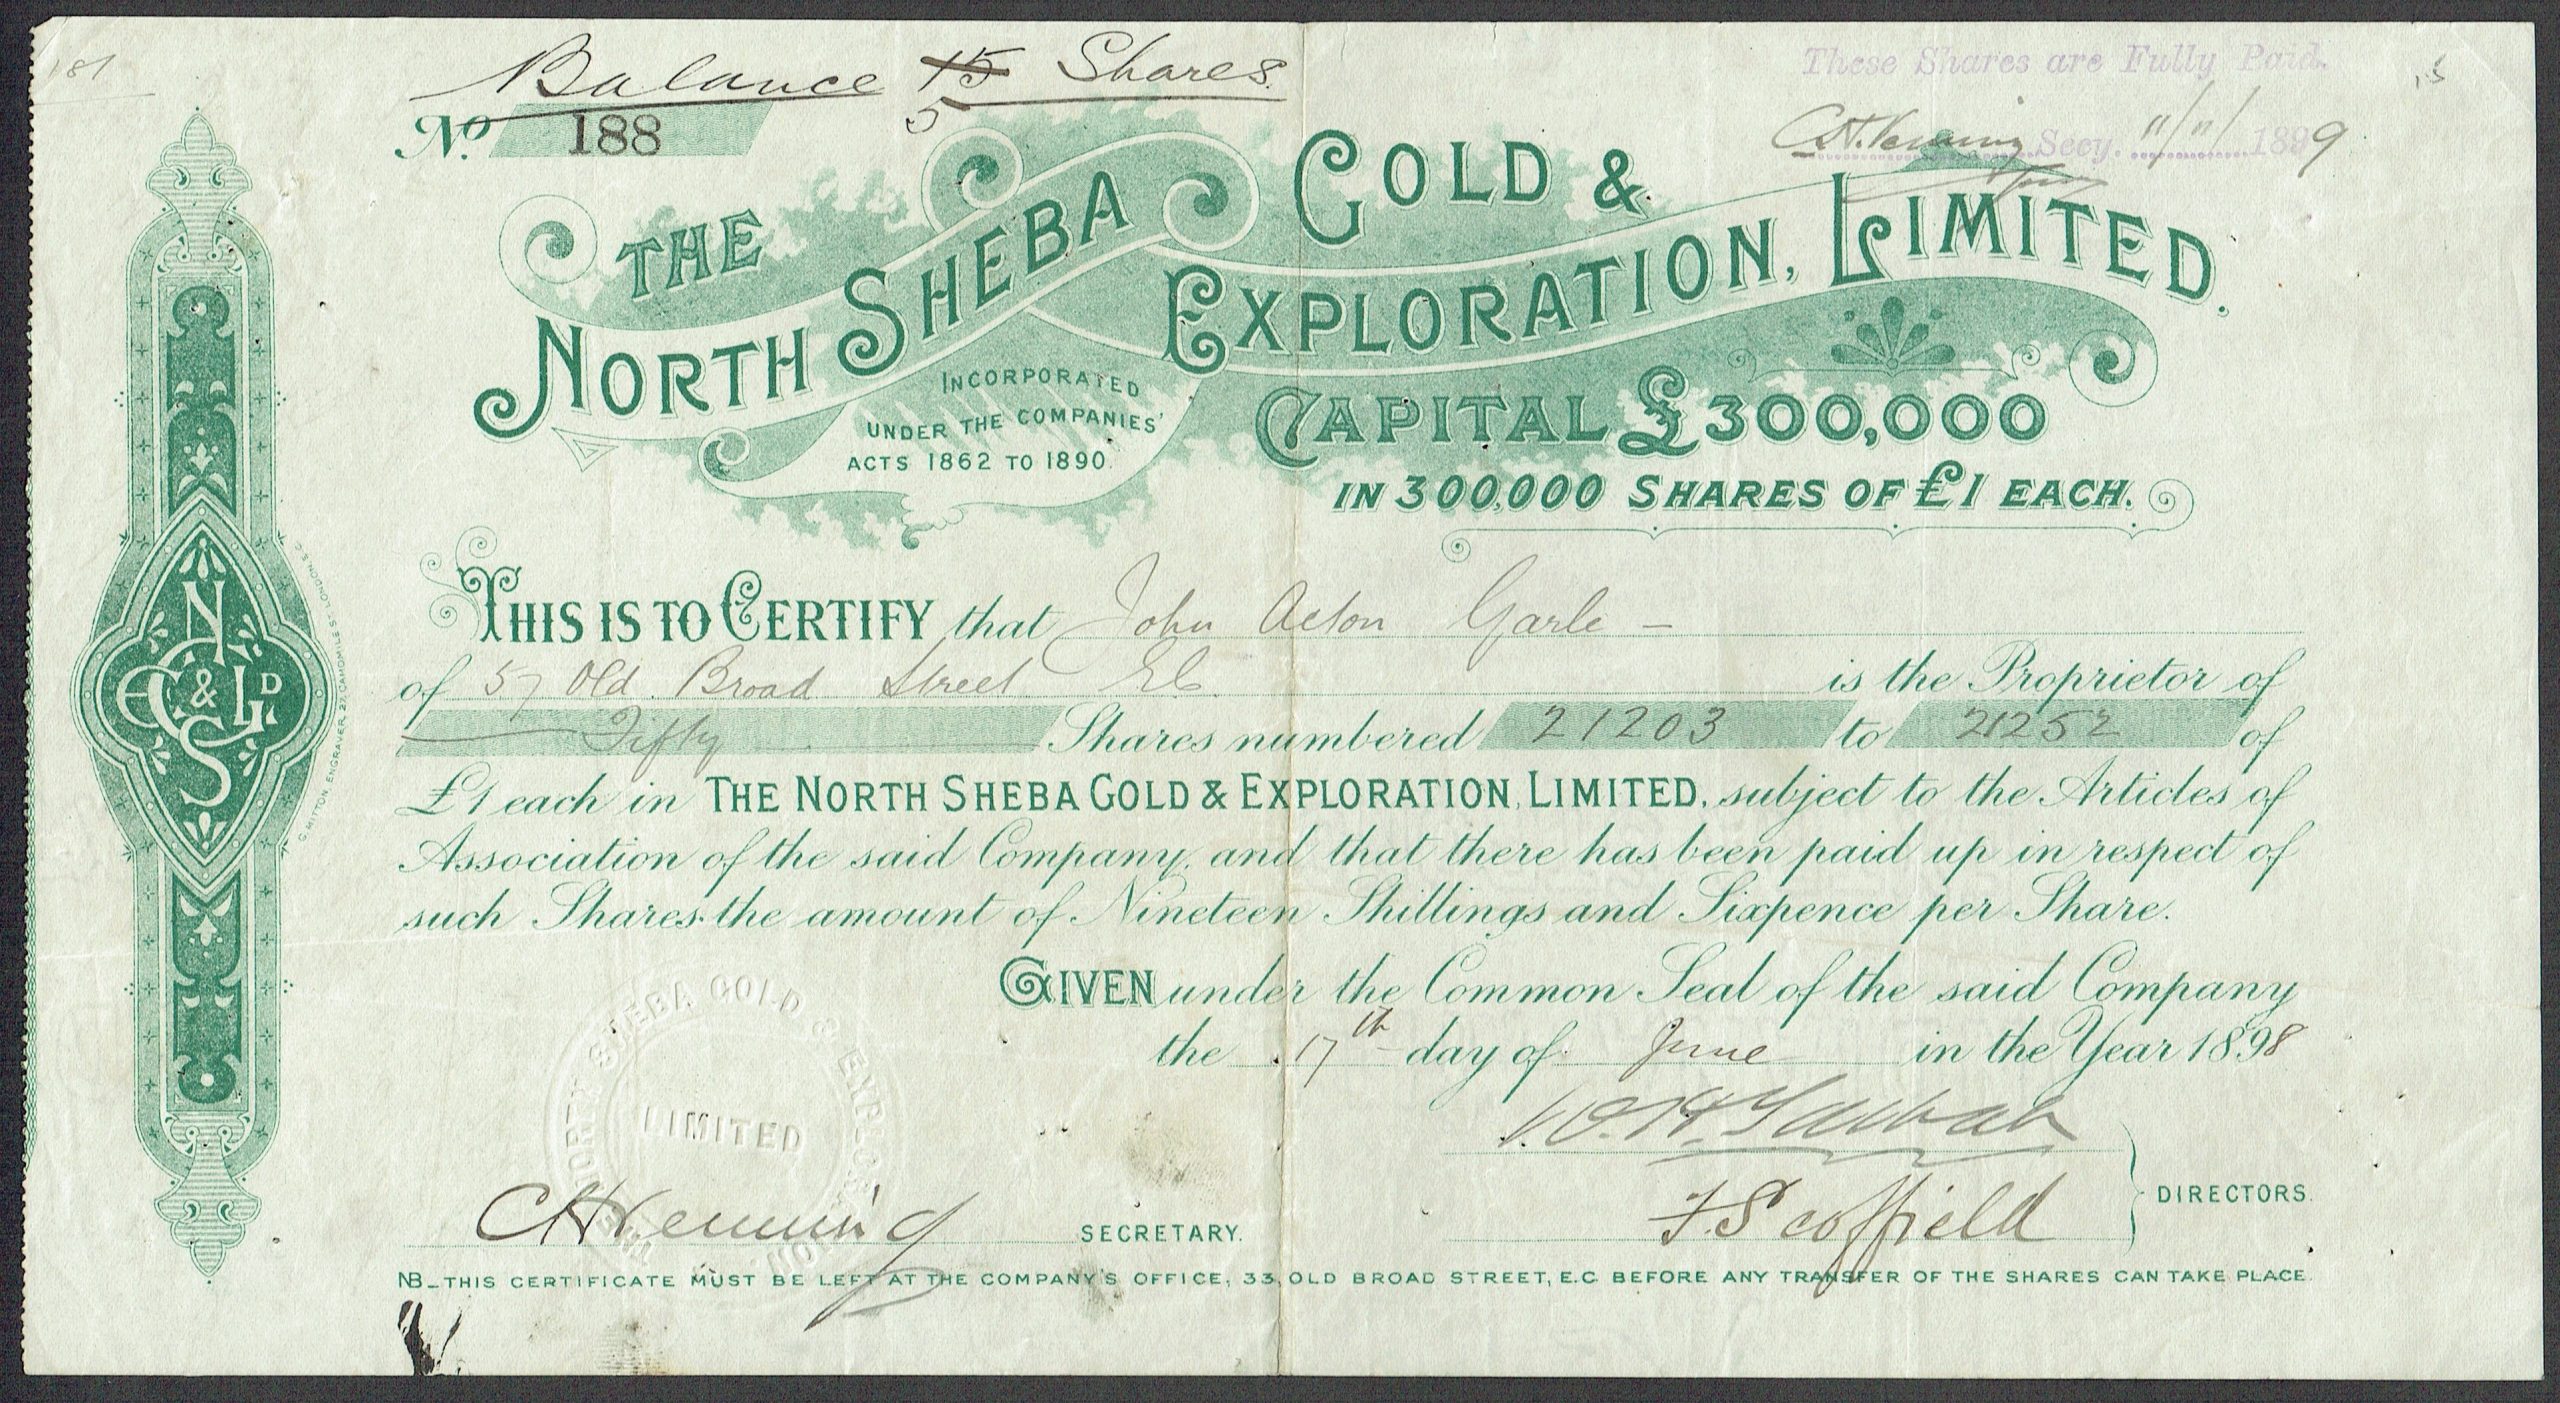 181
Balance 15 Shares.
5
These Shares are Fully Paid.
Secy. 11/11/1899
No. 188
THE NORTH SHEBA GOLD & EXPLORATION, LIMITED.
INCORPORATED
UNDER THE COMPANIES'
ACTS 1862 TO 1890.
CAPITAL £300,000
IN 300,000 SHARES OF £1 EACH.
THIS IS TO CERTIFY that John Acton Garle
of 57 Old Broad Street E.C. is the Proprietor of
Fifty Shares numbered 21203 to 21252 of
£1 each in THE NORTH SHEBA GOLD & EXPLORATION, LIMITED, subject to the Articles of
Association of the said Company, and that there has been paid up in respect of
such Shares the amount of Nineteen Shillings and Sixpence per Share.
GIVEN under the Common Seal of the said Company
the 17th day of June in the Year 1898
F. Scoffield
DIRECTORS.
SECRETARY.
NB_THIS CERTIFICATE MUST BE LEFT AT THE COMPANY'S OFFICE, 33, OLD BROAD STREET, E.C. BEFORE ANY TRANSFER OF THE SHARES CAN TAKE PLACE.
NORTH SHEBA GOLD & EXP
LIMITED
N S G & E LD
G. MITTON, ENGRAVER, 27, CAMOMILE ST. LONDON E.C.